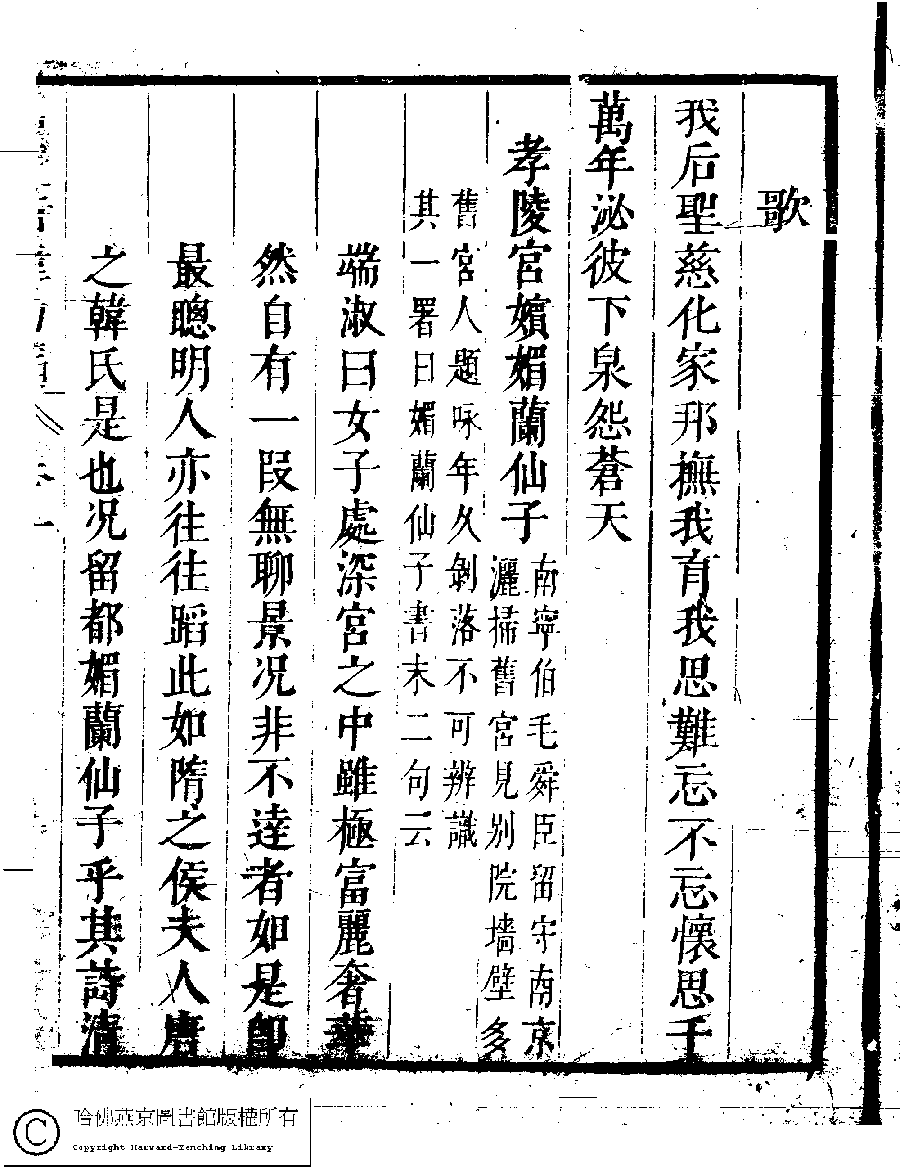 歌
我后聖慈化家邦撫我育我思難忘不忘懷思千
萬年泌彼下泉怨蒼天
孝陵宮嬪媚蘭仙子
南寧伯毛舜臣留守南京
灑掃舊宮見別院墻壁多
舊宮人題咏年久剝落不可辨識
其一署曰媚蘭仙子書末二句云
端淑曰女子處深宮之中雖極富麗奢華
然自有一段無聊景况非不達者如是卽
最聰明人亦往往蹈此如隋之侯夫人唐
之韓氏是也况留都媚蘭仙子乎其詩淸
哈佛燕京圖書館版權所有
Copyright Harvard-Yenching Library